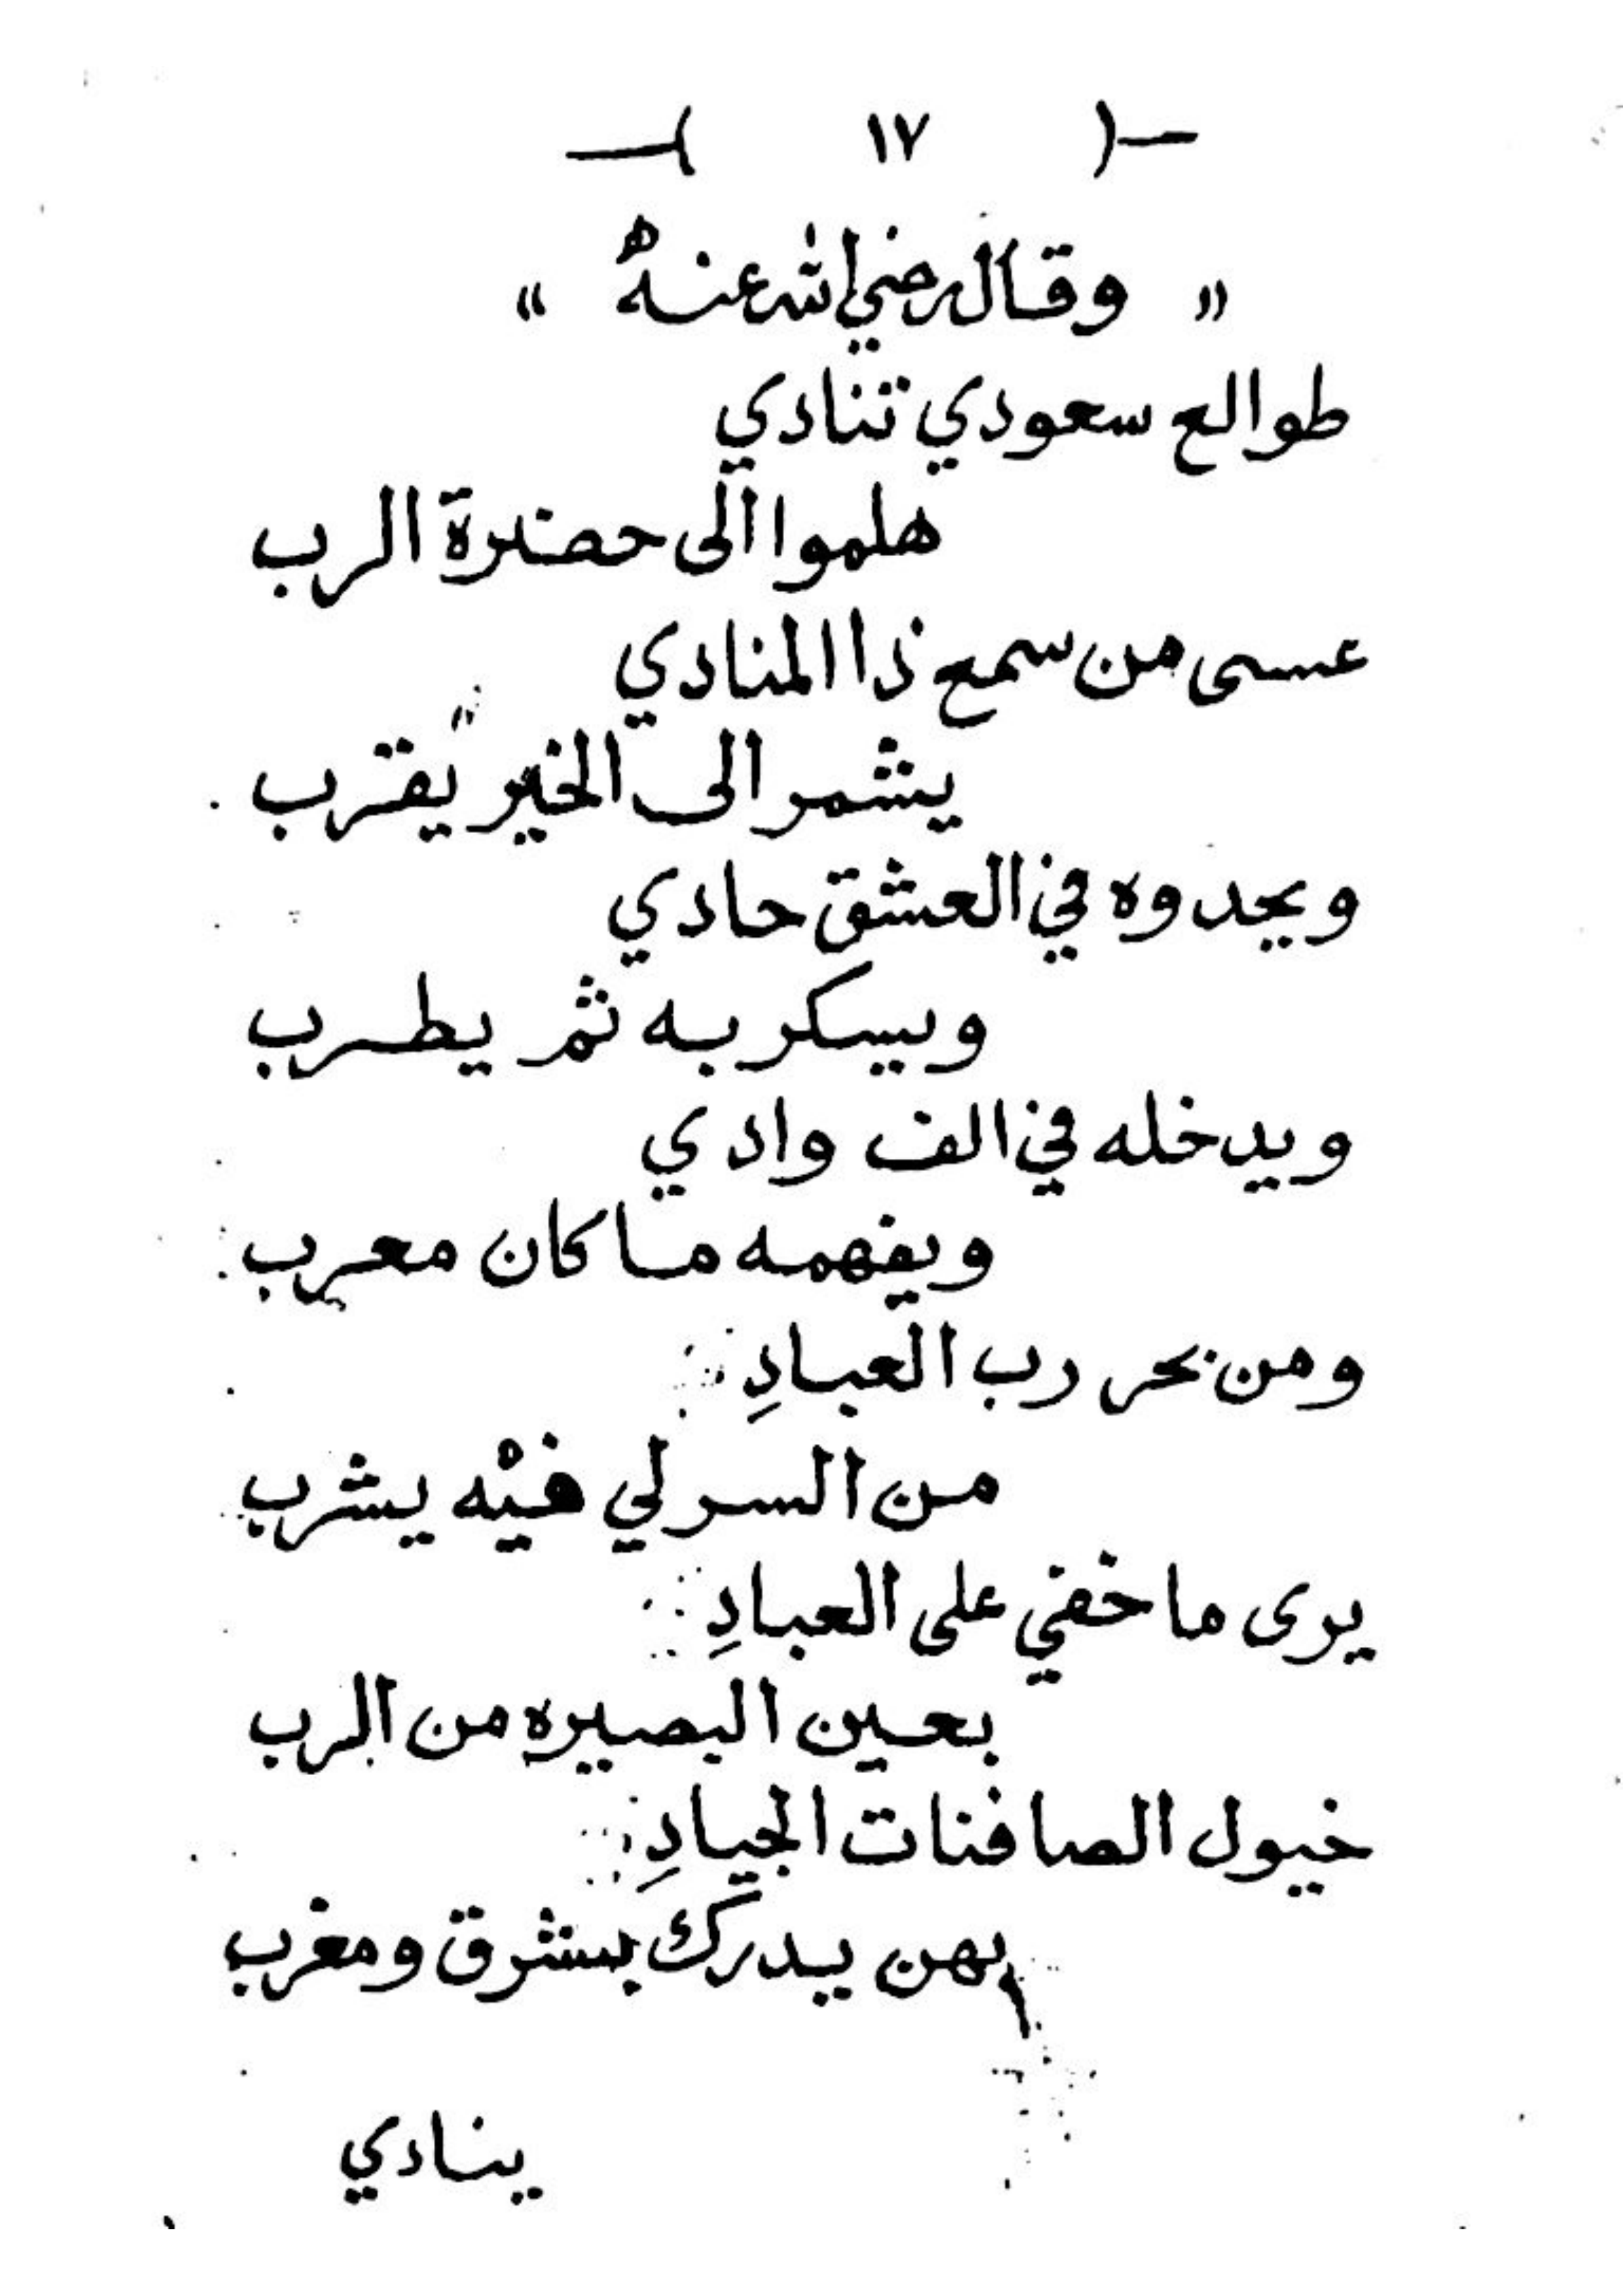 —( ١٧ )—
« وقال رضي الله عنهُ »
طوالع سعودي تنادي
هلموا الى حضرة الرب
عسى من سمع ذا المنادي
يشمر الى الخير يقترب
ويحدوه في العشق حادي
ويسكر به ثم يطرب
ويدخله في الف وادي
ويفهمه ما كان معرب
ومن بحر رب العبادِ
من السر لي فيْه يشرب
يرى ما خفي على العبادِ
بعين البصيره من الرب
خيول الصافنات الجيادِ
بهن يدرك بشرق ومغرب
ينادي